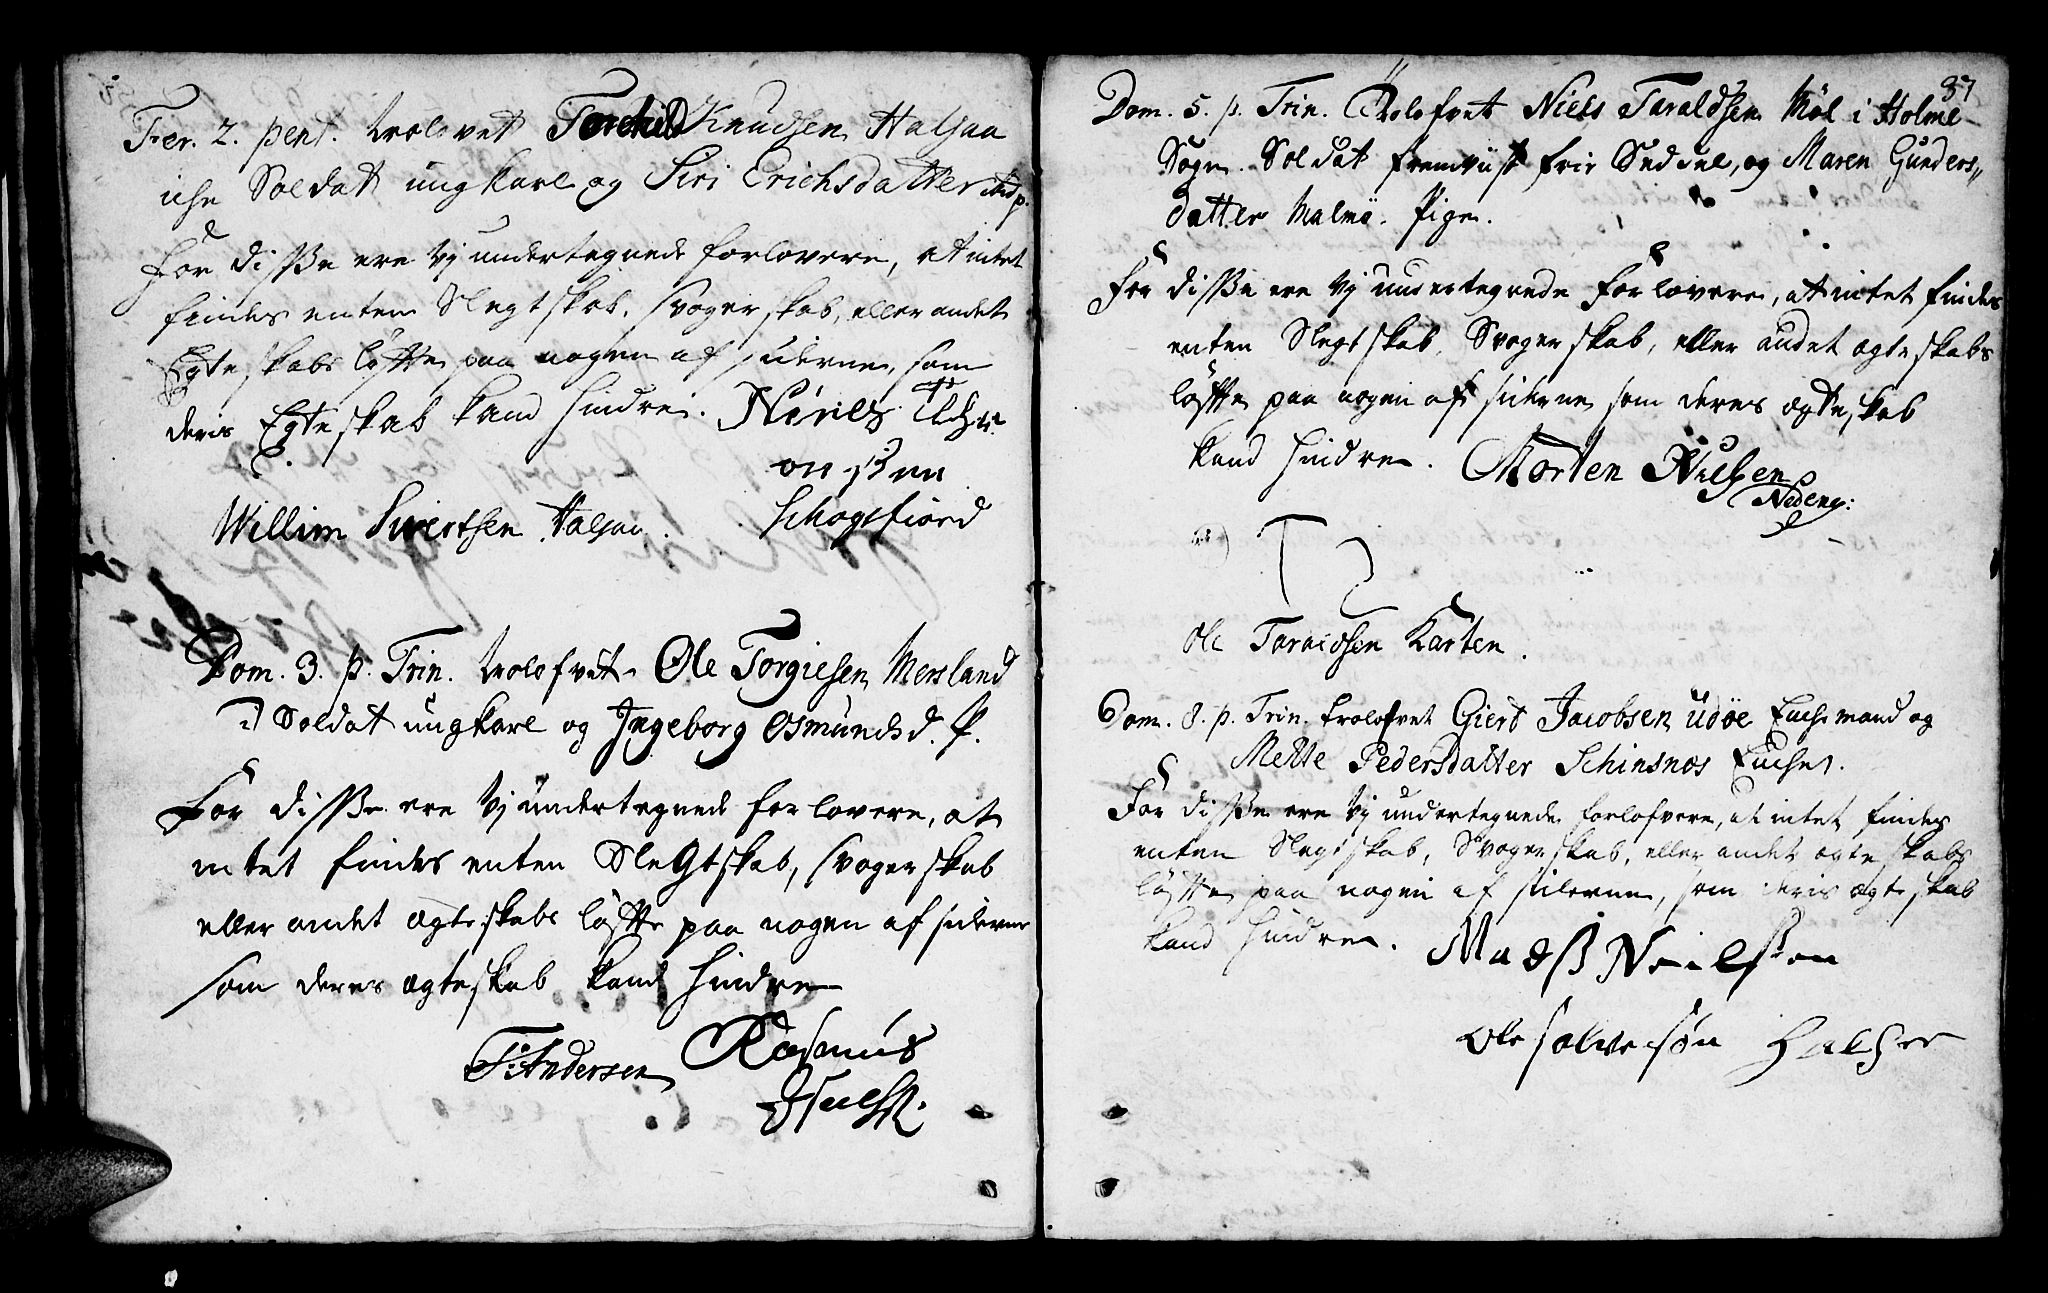 Fer. 2. pent. trolovet Torchild Knudsen Halsaa
iche Soldat ungkarl og Siri Erichsdatter ibid p.
For disse ere Vj undertegnede forlovere, at intet
findes enten Slegtskab, svogerskab, eller andet
Egteskabs løffte paa nogen af siderne, som
deris Egteskab kand hindre.
onssen
Willim Sivertsen Halsaa. Schogsfiord
Dom. 3. p. Trin. trolofvet Ole Torgiesen Mersland
Soldat ungkarl og Ingeborg Osmundsd. P.
For disse ere Vj undertegnede forlovere, at
intet findes enten Slegtskab, svogerskab
eller andet ægteskabs løffte paa nogen af siderne
som deres ægteskab kand hindre
T. Andersen Rasmus
37
Dom. 5. p. Trin. Trolofvet Niels Taraldsen Møl i Holme
Sogn. Soldat fremviist frie Seddel, og Maren Gunders„
datter Malmø. Pige.
For disse ere Vj undertegnede Forlovere, at intet findes
enten Slegtskab, Svogerskab, eller andet ægteskabs
løffte paa nogen af siderne som deres ægteskab
kand hindre. Morten Nielsen
Nedeny:
Ole Taraldsen Karten.
Dom. 8. p. Trin. trolofvet Giert Jacobsen Udøe Enchemand og
Mette Pedersdatter Schinsnos Enche.
For disse ere Vj undertegnede forlofvere, at intet findes
enten Slegtskab, Svogerskab, eller andet ægteskabs
løffte paa nogen af siderne, som deris ægteskab
kand hindre. Madss Neilssen
Ole salvesøn